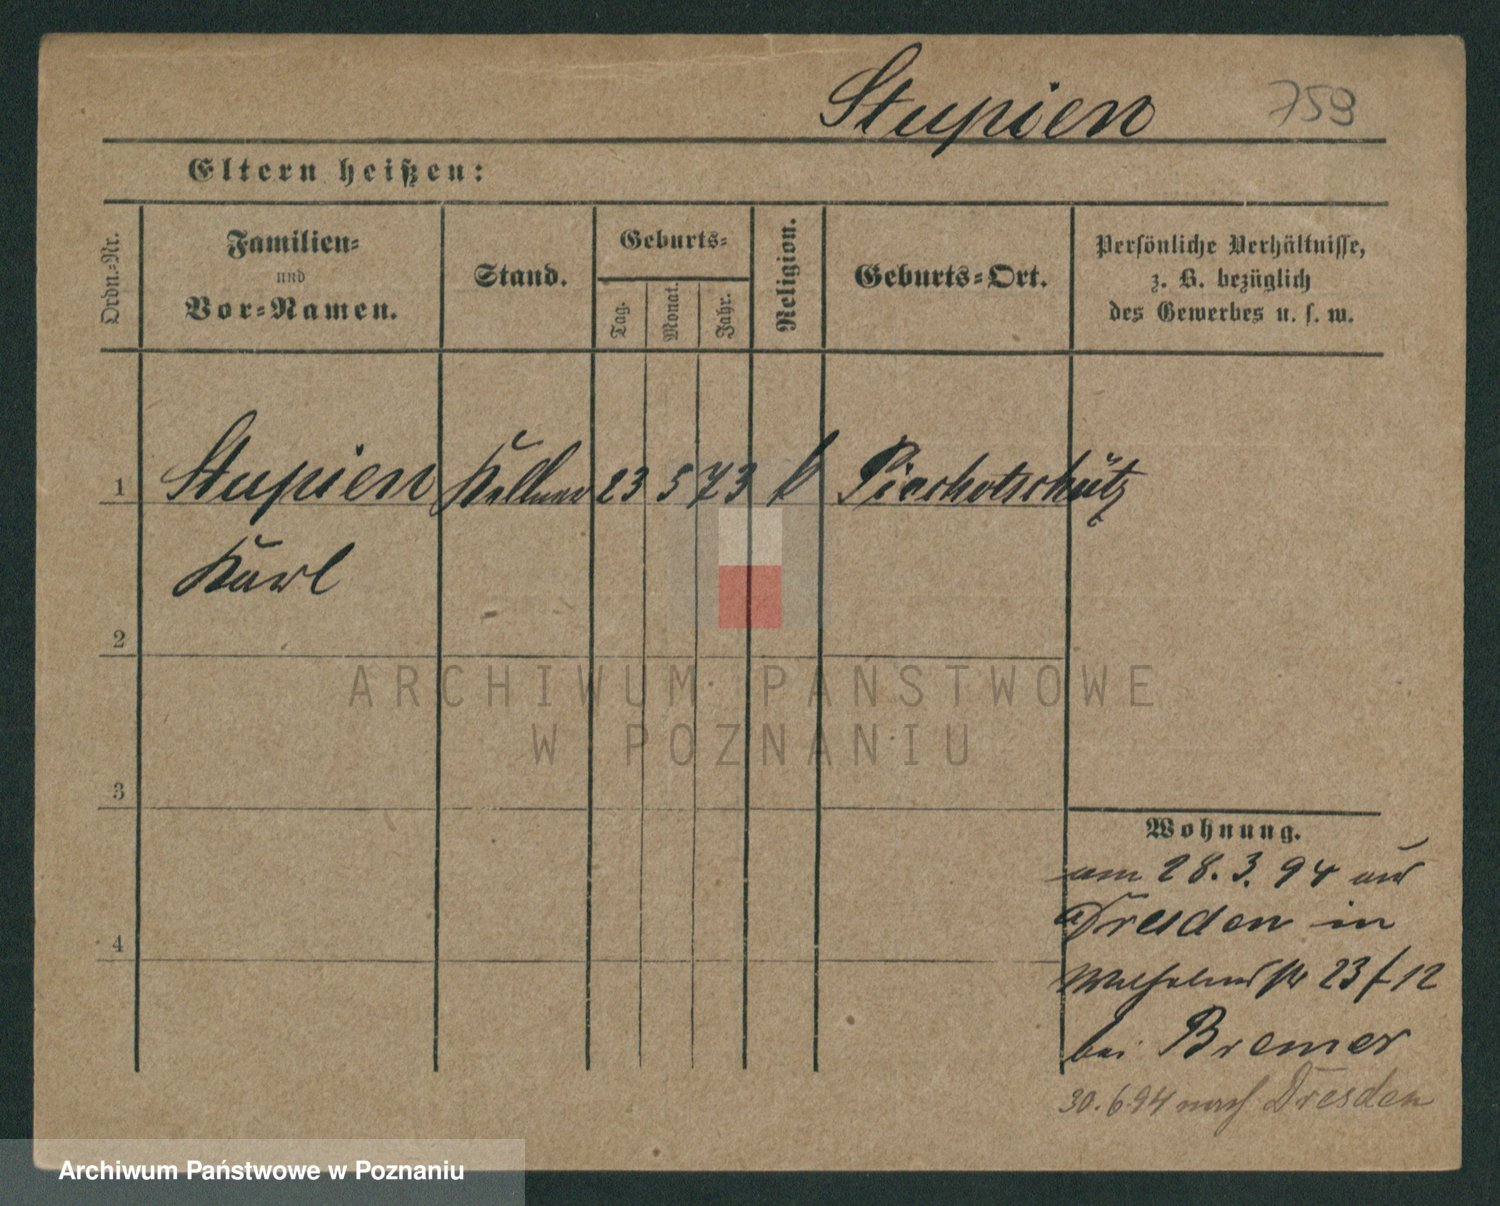 Stupien 759
Eltern heißen:
Ordn.-Nr.
Familien-
und
Vor-Namen.
Stand.
Geburts-
Tag.
Monat.
Jahr.
Religion.
Geburts-Ort.
Persönliche Verhältnisse,
z. B. bezüglich
des Gewerbes u. s. w.
1 Stupien Kellner 23 5 73 k Pieskotschütz
Karl
2
3
4
Wohnung.
am 28.3.94 aus
Dresden in
Wilhelmstr 23 f 12
bei Bremer
30.6.94 nach Dresden
ARCHIWUM PAŃSTWOWE
W POZNANIU
Archiwum Państwowe w Poznaniu